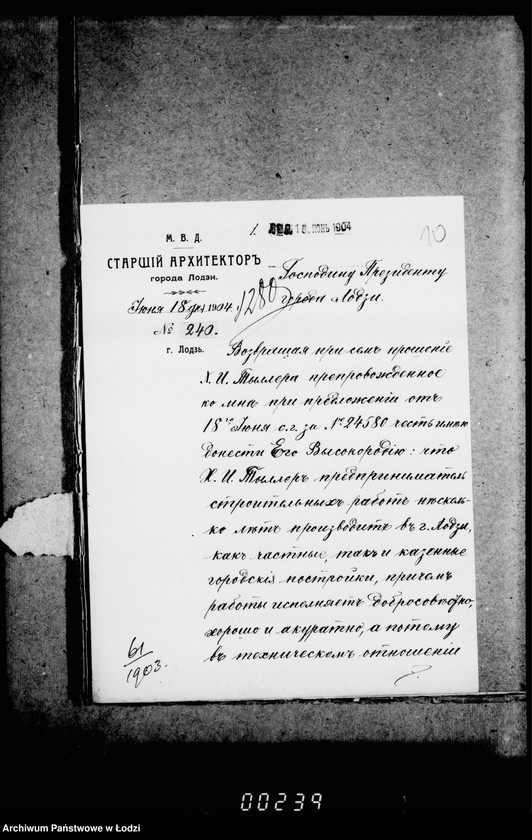 18 ИЮНЬ 1904
10
М. В. Д.
СТАРШІЙ АРХИТЕКТОРЪ
города Лодзи.
Господину Президенту
города Лодзи.
Іюня 18 дня 1904
№ 240.
г. Лодзь.
Возвращая при семъ прошеніе
Х. И. Тыллера препровожденное
ко мнѣ при предложеніи отъ
18го Іюня с.г. за № 24580 честь имѣю
донести Его Высокородію: что
Х. И. Тыллеръ предприниматель
строительныхъ работъ нѣсколь-
ко лѣтъ производитъ въ г. Лодзи,
какъ частные, такъ и казенные
городскія постройки, причемъ
работы исполняетъ добросовѣстно,
хорошо и акуратно, а потому
въ техническомъ отношеніи
61
1903.
00239
Archiwum Państwowe w Łodzi